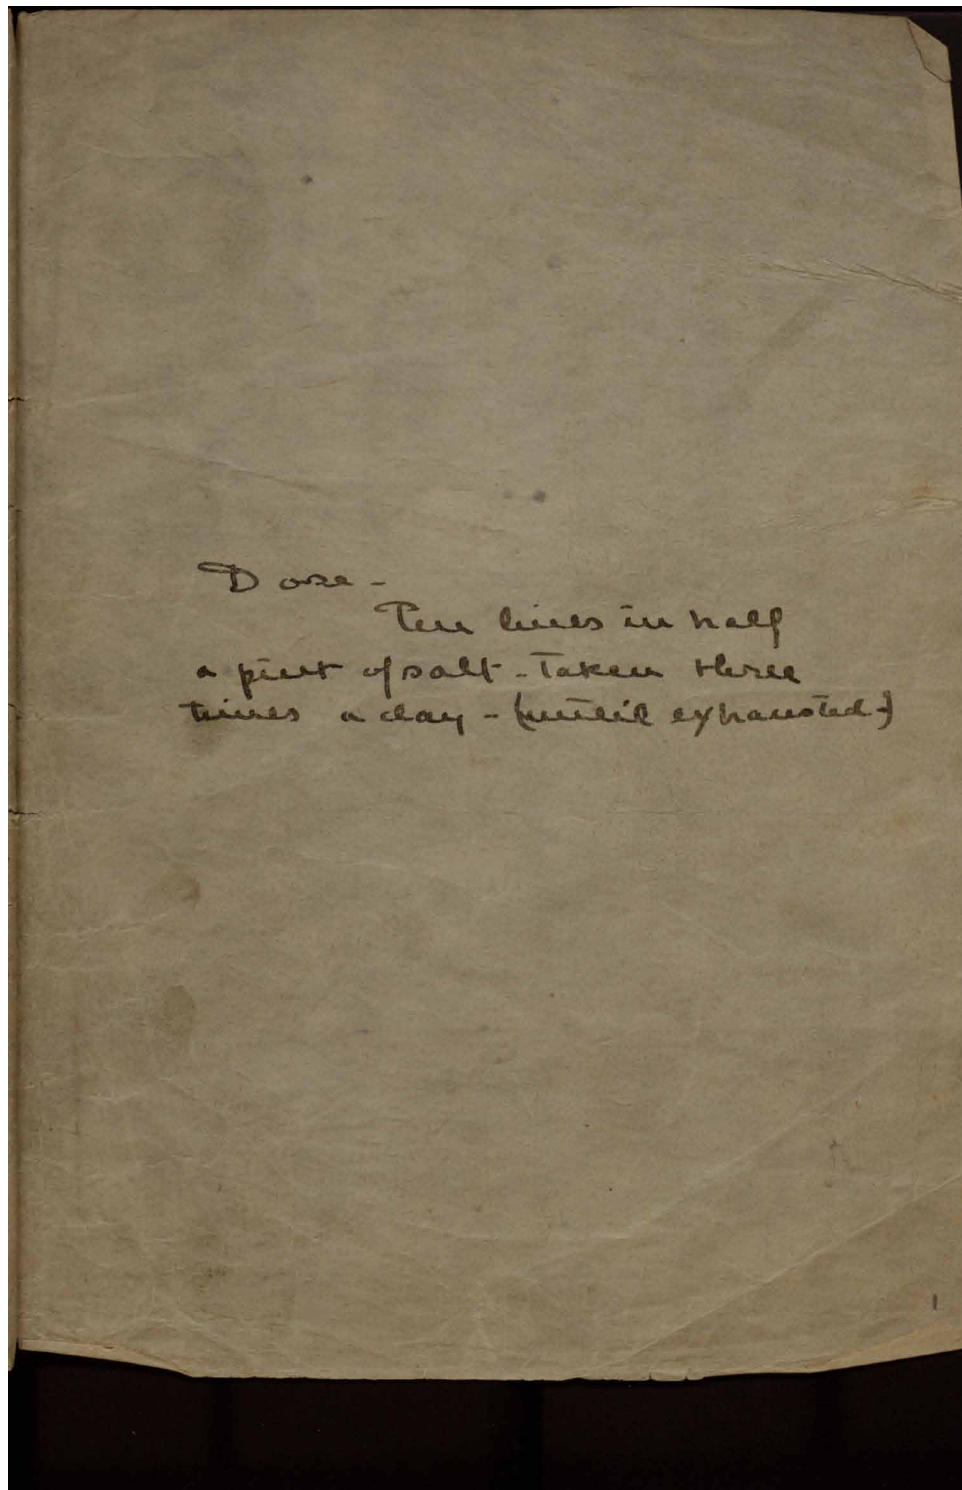 Dose -
Ten lines in half
a pint of salt - Taken three
times a day - (until exhausted -)
1